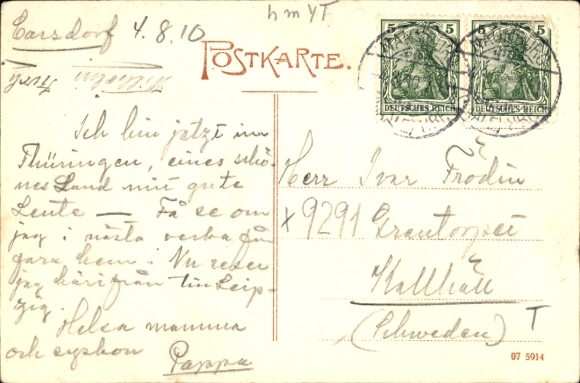 Carsdorf 4.8.10
POSTKARTE.
5 5
DEUTSCHES REICH DEUTSCHES REICH
Ich bin jetzt im
Thüringen, eines schö-
nes Land mit gute
Leute — Få se om
jag i nästa vecka får
fara hem. Nu reser
jag härifrån till Leip-
zig.
Helsa mamma
och
Pappa
Herr Ivar Frödin
x 9291
Kallhäll
(Schweden) T
07 5914